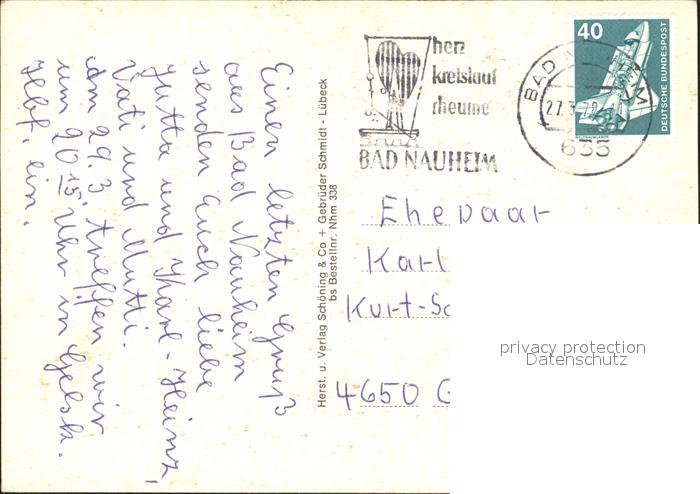 Einen letzten Gruß
aus Bad Nauheim
senden Euch liebe
Jutta und Karl-Heinz,
Vati und Mutti.
Am 29.3. treffen wir
um 20 15 Uhr in Gelsk.
Hbf. ein.
Herst. u. Verlag Schöning & Co + Gebrüder Schmidt - Lübeck
bs Bestellnr. Nhm 338
herz
kreislauf
rheuma
BAD NAUHEIM
40
DEUTSCHE BUNDESPOST
BAD
635
Ehepaar
Karl
Kurt-Sc
4650 G
privacy protection
Datenschutz